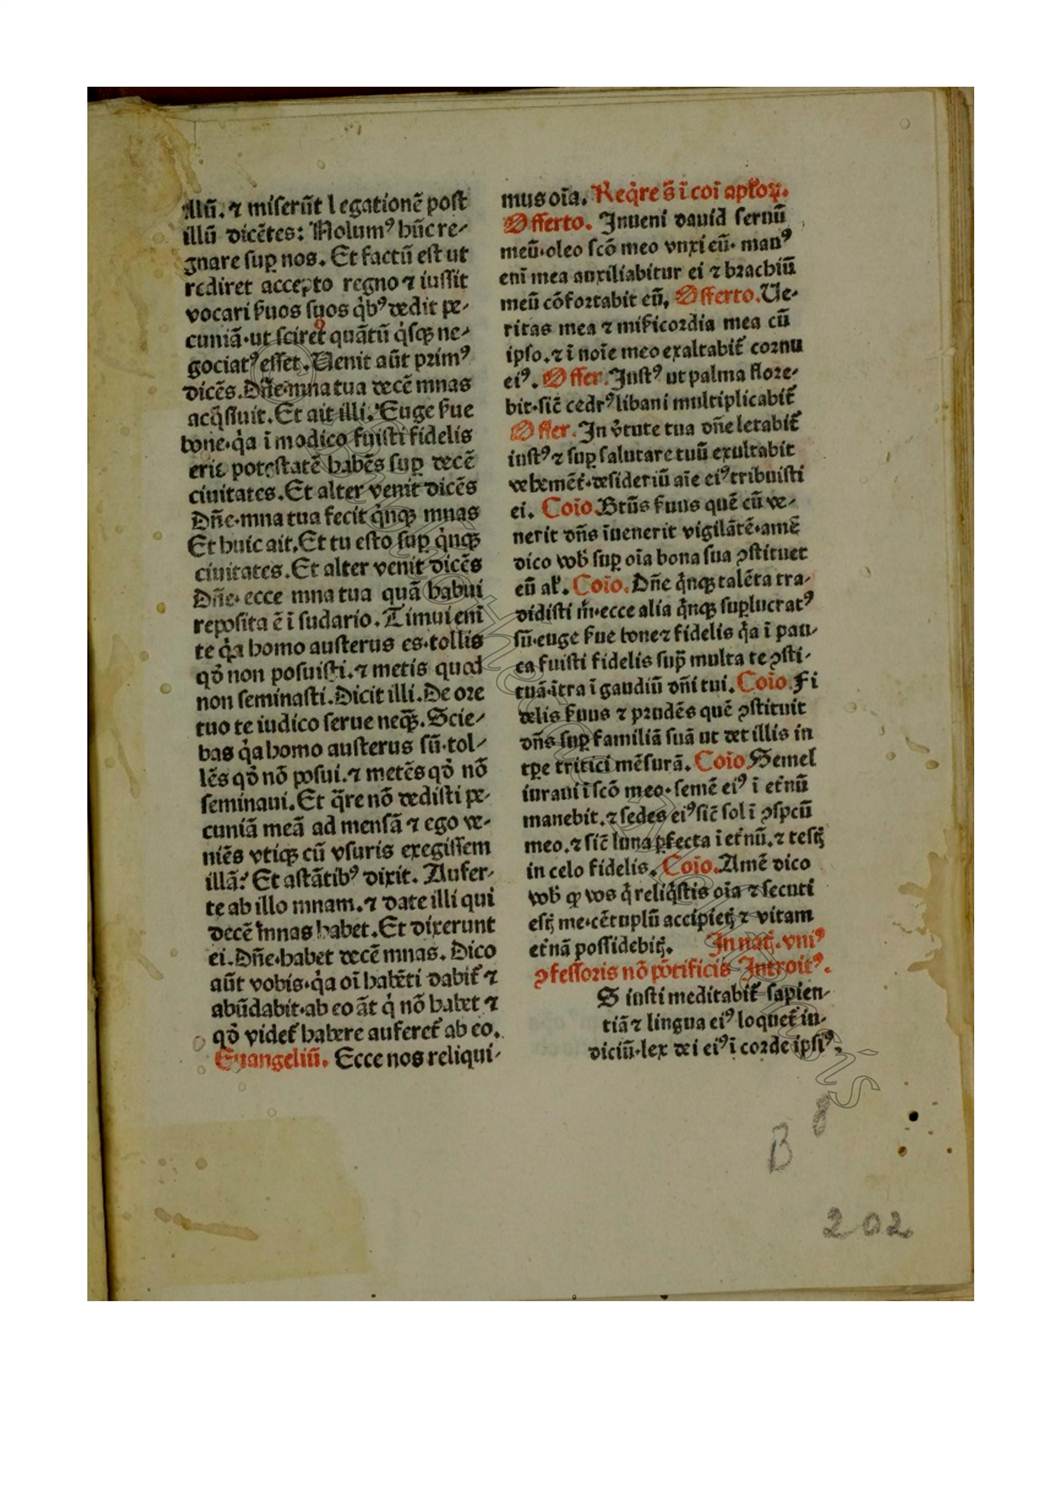 illū. ⁊ miserūt legationē post
illū dicētes: Nolumꝰ hūc re⸗
gnare suꝑ nos. Et factū est ut
rediret accepto regno ⁊ iussit
vocari ẜuos suos q̇bꝰ dedit pe⸗
cuniā·ut sciret quātū q̇sqꝫ ne⸗
gociatꝰ esset. Venit aūt primꝰ
dicēs. Dn̄e·mna tua decē mnas
acq̇siuit. Et ait illi. Euge ẜue
bone·q̇a ī modico fuisti fidelis
eris potestatē habēs suꝑ decē
ciuitates. Et alter venit dicēs
Dn̄e·mna tua fecit q̇nqꝫ mnas
Et huic ait. Et tu esto suꝑ q̇nqꝫ
ciuitates. Et alter venit dicēs
Dn̄e· ecce mna tua quā habui
reposita ē ī sudario. Timui enī
te q̇a homo austerus es·tollis
qđ non posuisti.⁊ metis quod
non seminasti. Dicit illi. De ore
tuo te iudico serue neqꝫ. Scie⸗
bas q̇a homo austerus sū·tol⸗
lēs qđ nō posui.⁊ metēs qđ nō
seminaui. Et q̄re nō dedisti pe⸗
cuniā meā ad mensā ⁊ ego ve⸗
niēs vtiqꝫ cū vsuris exegissem
illā? Et astātibꝰ dixit. Aufer⸗
te ab illo mnam.⁊ date illi qui
decē mnas habet. Et dixerunt
ei. Dn̄e·habet decē mnas. Dico
aūt vobis·q̇a oī habēti dabit̄ ⁊
abūdabit·ab eo āt q̇ nō habet ⁊
qđ videt̄ habere auferet̄ ab eo.
Euangeliū. Ecce nos reliqui⸗
mus oīa. Req̇re s̄ ī coī apl̄oꝝ.
Offerto. Inueni dauid seruū
meū·oleo scō meo vnxi eū· manꝰ
enī mea auxiliabitur ei ⁊ brachiū
meū cōfortabit eū. Offerto. Ve⸗
ritas mea ⁊ mīẜicordia mea cū
ipso.⁊ ī noīe meo exaltabit̄ cornu
eiꝰ. Offer. Iustꝰ ut palma flore⸗
bit·sic̄ cedrꝰ libani multiplicabit̄
Offer. In v̄tute tua dn̄e letabit̄
iustꝰ ⁊ suꝑ salutare tuū exultabit
vehemēt̄·desideriū aīe eiꝰ tribuisti
ei. Coīo. Btūs ẜuus quē cū ve⸗
nerit dn̄s īuenerit vigilātē·amē
dico vob̄ suꝑ oīa bona sua ꝯstituet
eū al̄. Coīo. Dn̄e q̇nqꝫ talēta tra⸗
didisti m̄·ecce alia q̇nqꝫ suꝑlucratꝰ
sū·euge ẜue bone⁊ fidelis q̇a ī pau⸗
ca fuisti fidelis suꝑ multa te ꝯsti⸗
tuā·ītra ī gaudiū dn̄i tui. Coīo. Fi
delis ẜuus ⁊ prudēs quē ꝯstituit
dn̄s suꝑ familiā suā ut det illis in
tꝑe tritici mēsurā. Coīo Semel
iuraui ī scō meo· semē eiꝰ ī et̄nū
manebit.⁊ sedes eiꝰ sic̄ sol ī ꝯspcū
meo.⁊ sic̄ luna ꝑfecta ī et̄nū.⁊ testꝭ
in celo fidelis. Coīo. Amē dico
vob̄ ꝙ vos q̇ reliq̇stis oīa ⁊ secuti
estꝭ me·cētuplū accipietꝭ ⁊ vitam
et̄nā possidebitꝭ. In natꝭ. vniꝰ
ꝯfessoris nō pōtificis Introitꝰ.
S iusti meditabit̄ sapien⸗
tiā ⁊ lingua eiꝰ loquet̄ iu⸗
diciū·lex dei eiꝰ ī corde ipsiꝰ.
B
202